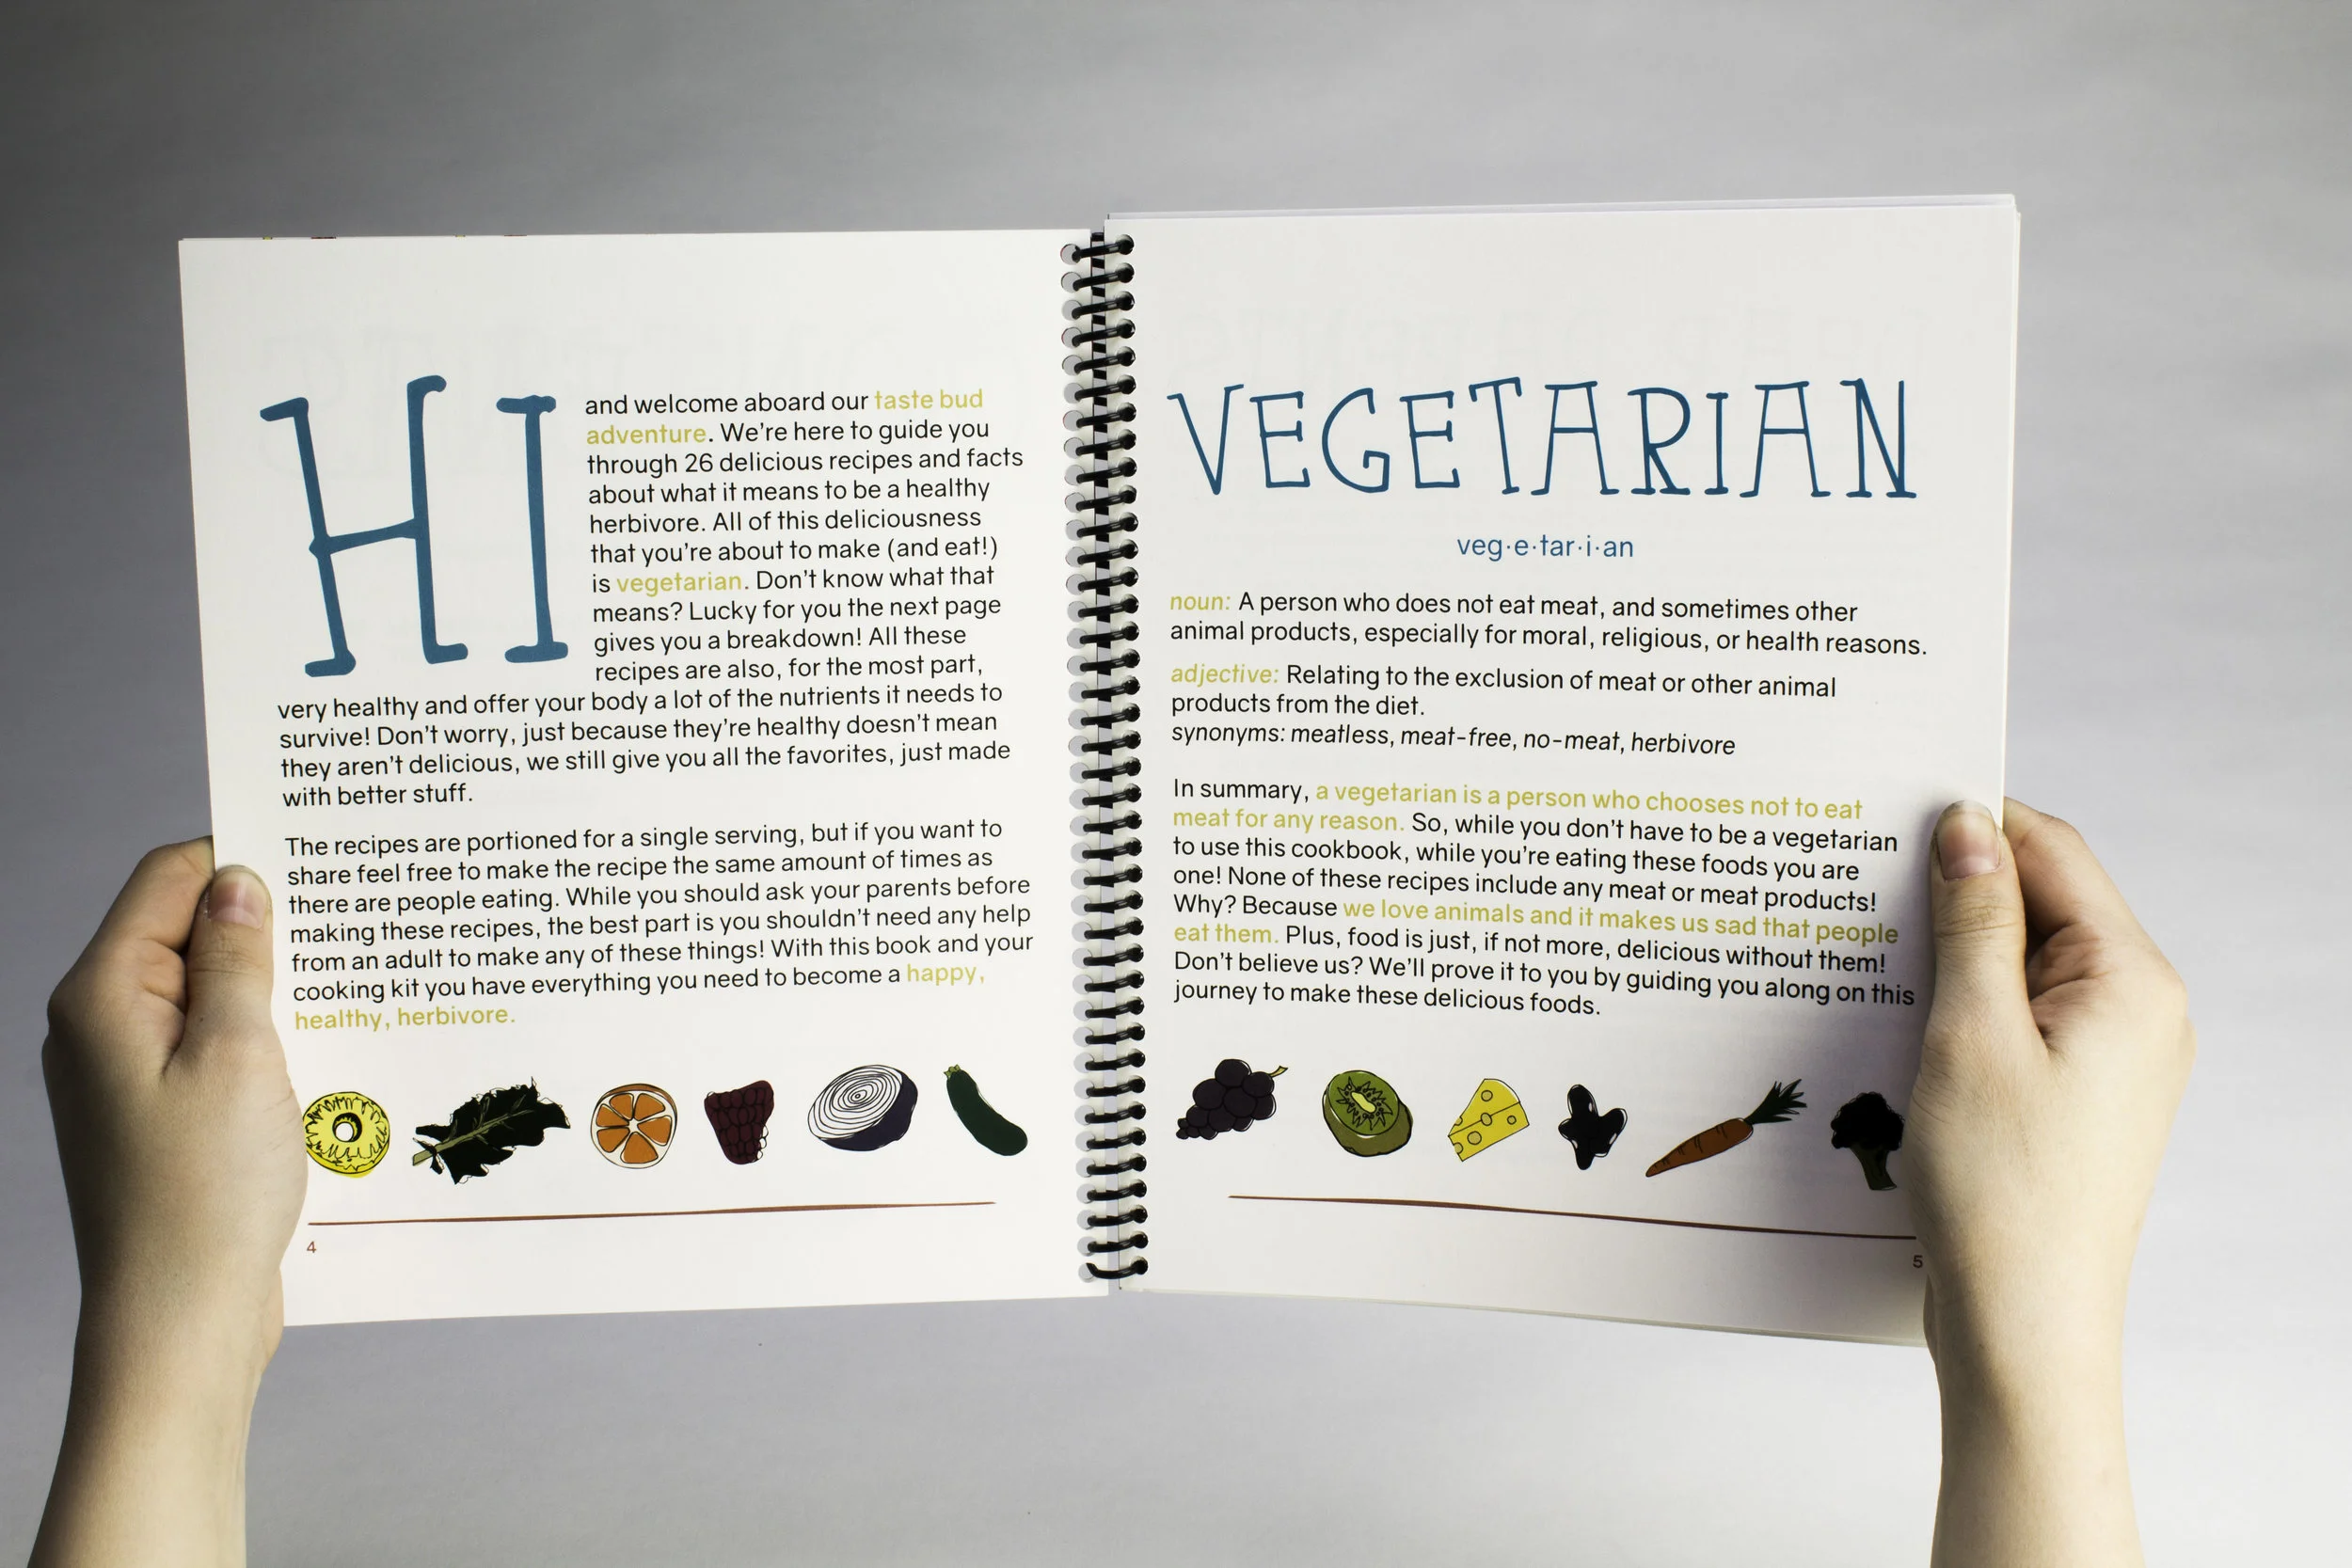 HI
and welcome aboard our taste bud
adventure. We're here to guide you
through 26 delicious recipes and facts
about what it means to be a healthy
herbivore. All of this deliciousness
that you're about to make (and eat!)
is vegetarian. Don't know what that
means? Lucky for you the next page
gives you a breakdown! All these
recipes are also, for the most part,
very healthy and offer your body a lot of the nutrients it needs to
survive! Don't worry, just because they're healthy doesn't mean
they aren't delicious, we still give you all the favorites, just made
with better stuff.
The recipes are portioned for a single serving, but if you want to
share feel free to make the recipe the same amount of times as
there are people eating. While you should ask your parents before
making these recipes, the best part is you shouldn't need any help
from an adult to make any of these things! With this book and your
cooking kit you have everything you need to become a happy,
healthy, herbivore.
4
VEGETARIAN
veg·e·tar·i·an
noun: A person who does not eat meat, and sometimes other
animal products, especially for moral, religious, or health reasons.
adjective: Relating to the exclusion of meat or other animal
products from the diet.
synonyms: meatless, meat-free, no-meat, herbivore
In summary, a vegetarian is a person who chooses not to eat
meat for any reason. So, while you don't have to be a vegetarian
to use this cookbook, while you're eating these foods you are
one! None of these recipes include any meat or meat products!
Why? Because we love animals and it makes us sad that people
eat them. Plus, food is just, if not more, delicious without them!
Don't believe us? We'll prove it to you by guiding you along on this
journey to make these delicious foods.
5